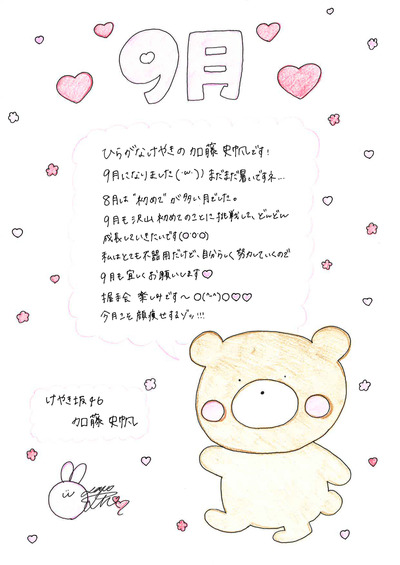 9月
ひらがなけやきの加藤史帆です!
9月になりました(･ω･)) まだまだ暑いですネ...
8月は"初めて"が多い月でした。
9月も沢山初めてのことに挑戦して、どんどん
成長していきたいです(○'○'○)
私はとても不器用だけど、自分らしく努力していくので
9月も宜しくお願いします♡
握手会 楽しみです〜 ○(^^)○♡♡
今月こそ顔痩せするゾッ!!!
けやき坂46
加藤 史帆